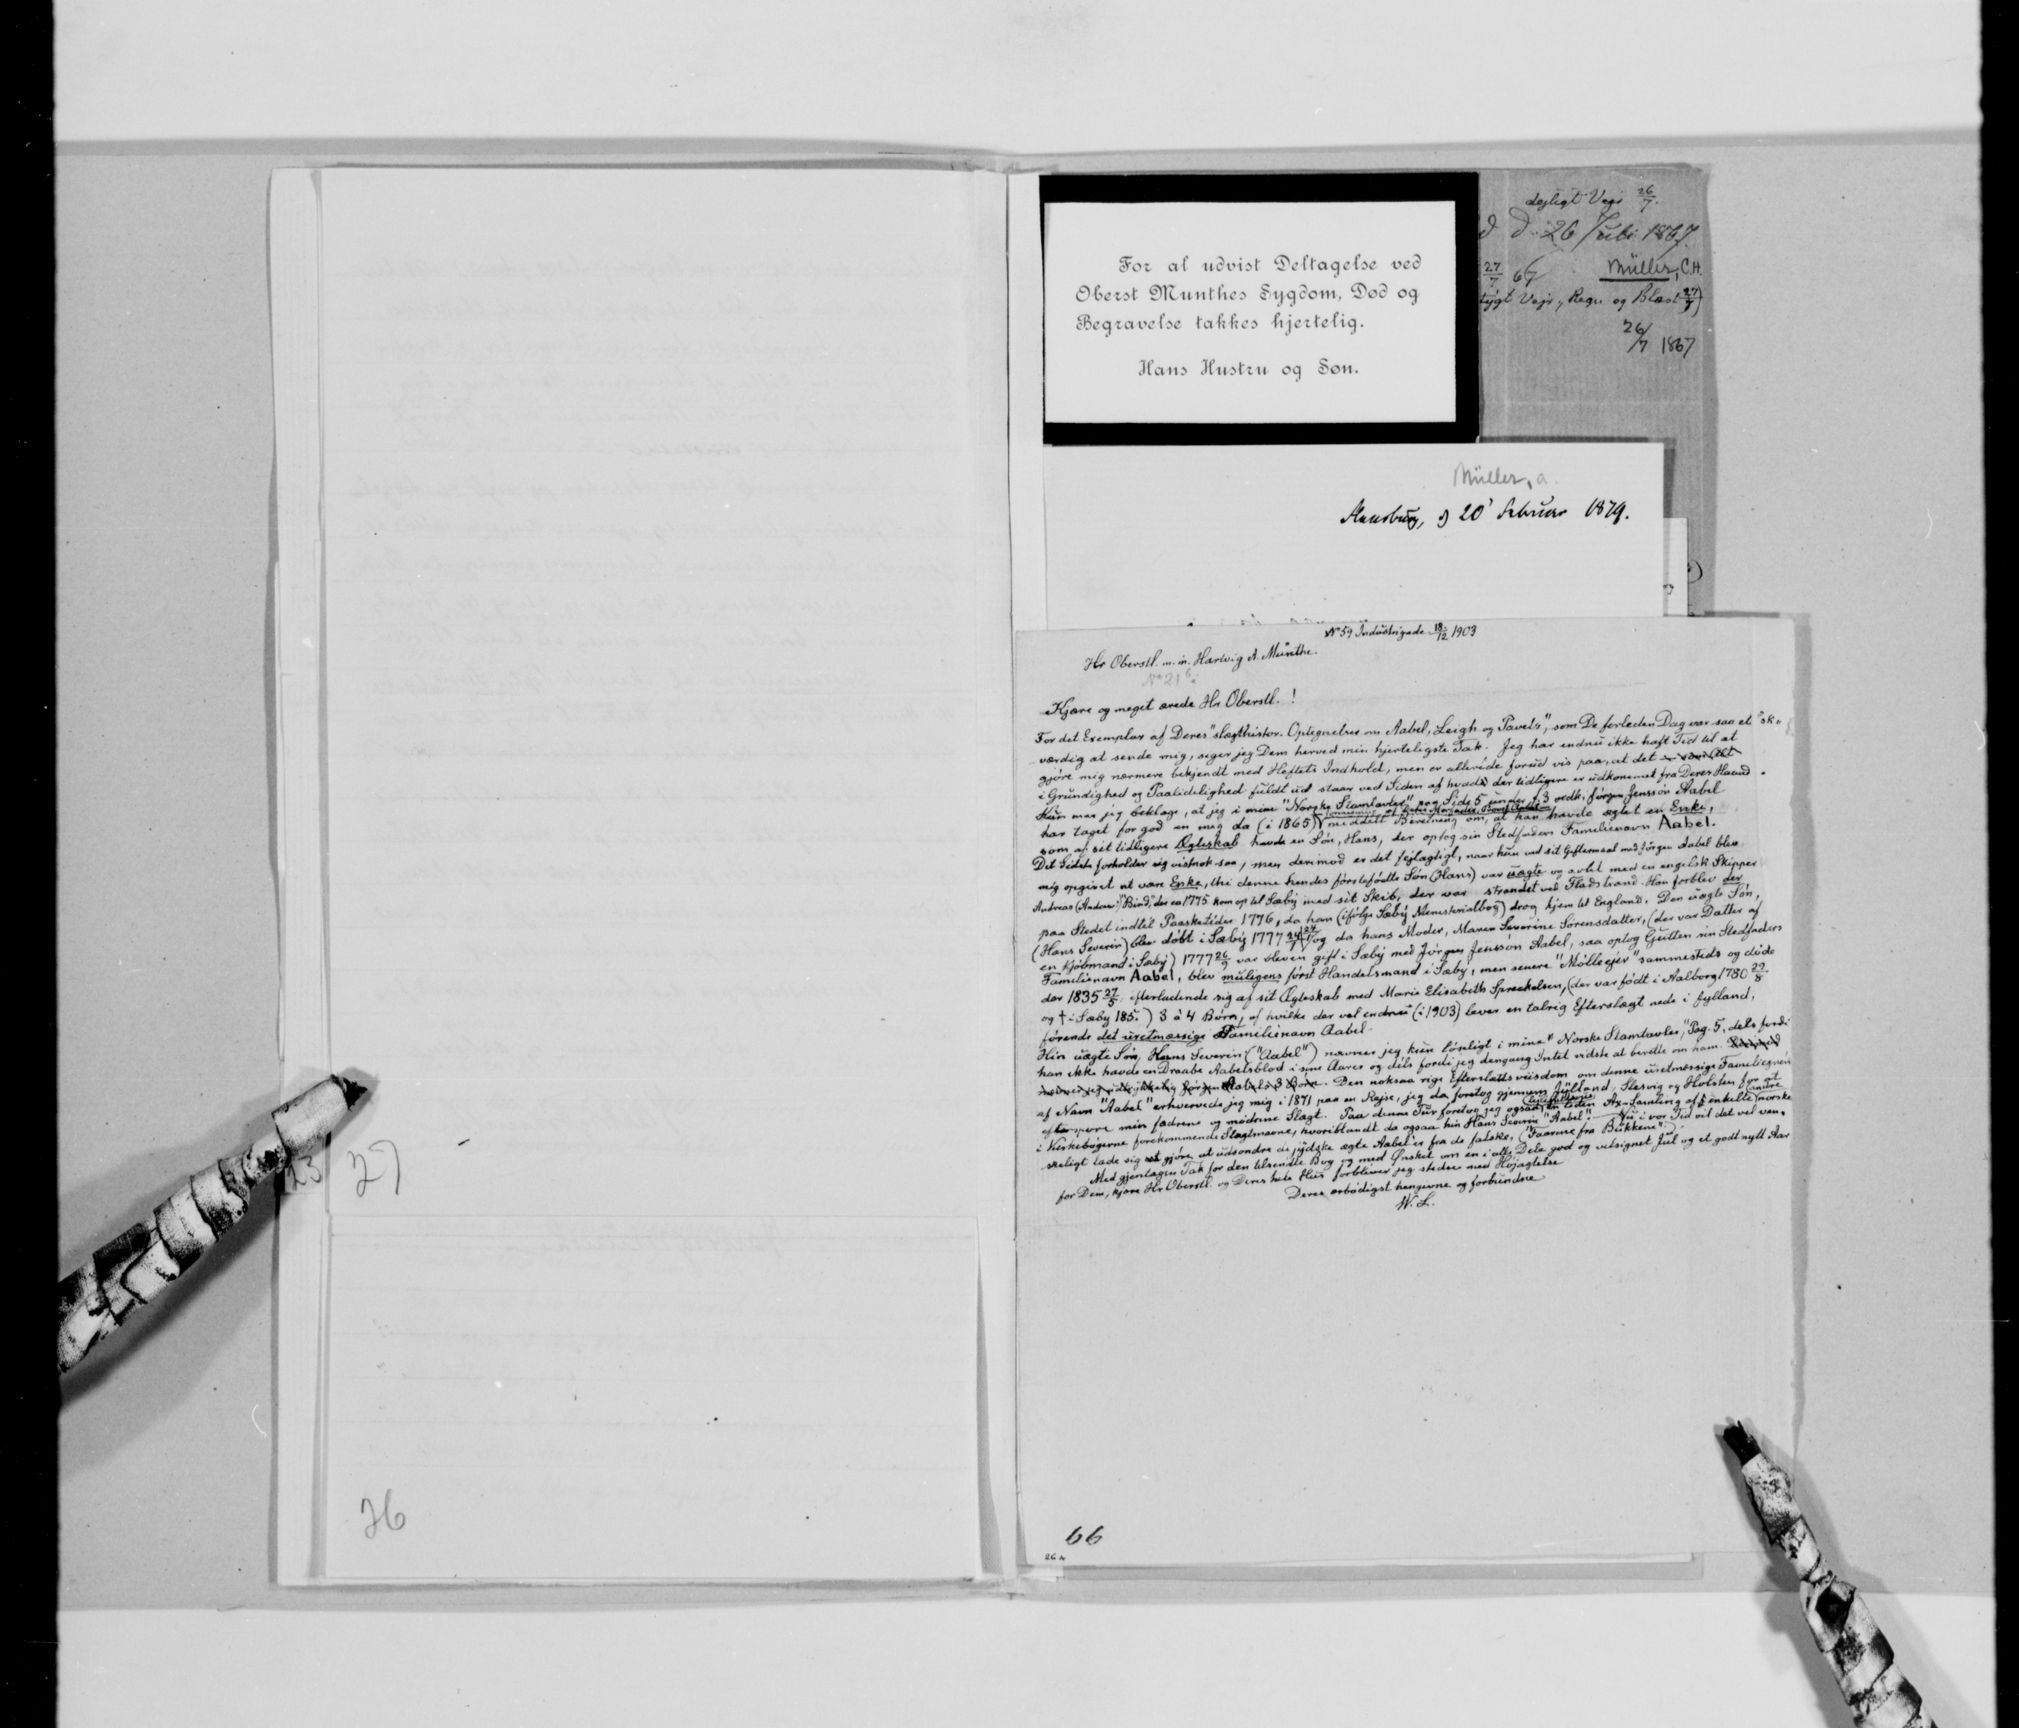 dejligt Vejr 26/7.
d. 26 Juli 1867.
27/7 67 Müller, C.H.
Vejr, Regn og Blæst 27/7)
26/7 1867
For al udvist Deltagelse ved
Oberst Munthes Sygdom, Død og
Begravelse takkes hjertelig.
Hans Hustru og Søn.
Müller, a.
Flensburg, d 20' Februar 1879.
No 59 Industrigade 18/12 1903
Hr Oberstl. m. m. Hartvig A. Munthe.
No 21
Kjære og meget ærede Hr Oberstl.!
For det Exemplar af Deres "slægthistor. Optegnelser om Aabel, Leigh og Pavels", som De forleden Dag var saa el
værdig at sende mig, siger jeg Dem herved min hjerteligste Tak. Jeg har endnu ikke haft Tid til at
gjöre mig nærmere bekjendt med Heftets Indhold, men er allerede forud vis paa, at det
i Grundighed og Paalidelighed fuldt ud staar ved Siden af hvad der tidligere er udkommet fra Deres Haand.
Kun maa jeg beklage, at jeg i mine "Norske Stamtavler" pag. Side 5 under 3 vedk. Jörgen Jenssön Aabel
har taget for god en mig da (i 1865) meddelt Beretning om, at han havde ægtet en Enke,
som af sit tidligere Ægteskab havde en Sön, Hans, der optog sin Stedfaders Familienavn Aabel.
Det sidste forholder sig vistnok saa, men derimod er det fejlagtigt, naar hun ved sit Giftermaal med Jörgen Aabel blev
mig opgivet at være Enke, thi denne hendes förstefödte Sön (Hans) var uægte og avlet med en engelsk Skipper
Andreas (Andrew) "Bird", der ca 1775 kom op til Sæby med sit Skib, der var strandet ved Fladstrand. Han forblev der
paa Stedet indtil Paasketider 1776, da han (ifölge Sæby Ministerialbog) drog hjem til England. Den uægte Sön,
(Hans Severin) blev döbt i Sæby 1777 og da hans Moder, Maren Severine Sörensdatter, (der var Datter af
en Kjöbmand i Sæby) 1777 26/9 var bleven gift i Sæby med Jörgen Jenssön Aabel, saa optog Gutten sin Stedfaders
Familienavn Aabel, blev muligens först Handelsmand i Sæby, men senere "Mölleejer" sammesteds og döde
der 1835 27/5 efterladende sig af sit Ægteskab med Marie Elisabeth Spreckelsen, (der var födt i Aalborg 1780 29/8
og † i Sæby 185.) 3 à 4 Börn, af hvilke der vel endnu (i 1903) lever en talrig Efterslægt nede i Jylland,
förende det uretmæssige Familienavn Aabel.
Hin uægte Sön, Hans Severin ("Aabel") nævner jeg kun lönligt i mine "Norske Stamtavler", Pag. 5, dels fordi
han ikke havde en Draabe Aabelsblod i sine Aarer og dels fordi jeg dengang Intet vidste at berette om ham.
Jörgen Aabels 3 Börn. Den noksaa rige Efterslætts viisdom om denne uretmæssige Familiegren
af Navn "Aabel" erhvervede jeg mig i 1871 paa en Rejse, jeg da foretog gjennem Jylland, Slesvig og Holsten for at
efterspore min fædrene og mödrene Slægt. Paa denne Tur foretog jeg ogsaa en liden Ax-Samling af enkelte andre norske
i Kirkebögerne forekommende Slægtnavne, hvoriblandt da ogsaa hin Hans Severin "Aabel". Nu i vor Tid vil det vel van-
skeligt lade sig gjöre, at udsondre de jydske ægte Aabel'er fra de falske, ("Faarene fra Bukkene").
Med gjentagen Tak for den tilsendte Bog og med Önsket om en i alle Dele god og velsignet Jul og et godt nytt Aar
for Dem, kjære Hr Oberstl. og Deres hele Hus forbliver jeg stedse med Höjagtelse
Deres ærbödigst hengivne og forbundne
W. L.
23
27
26
66
26 a